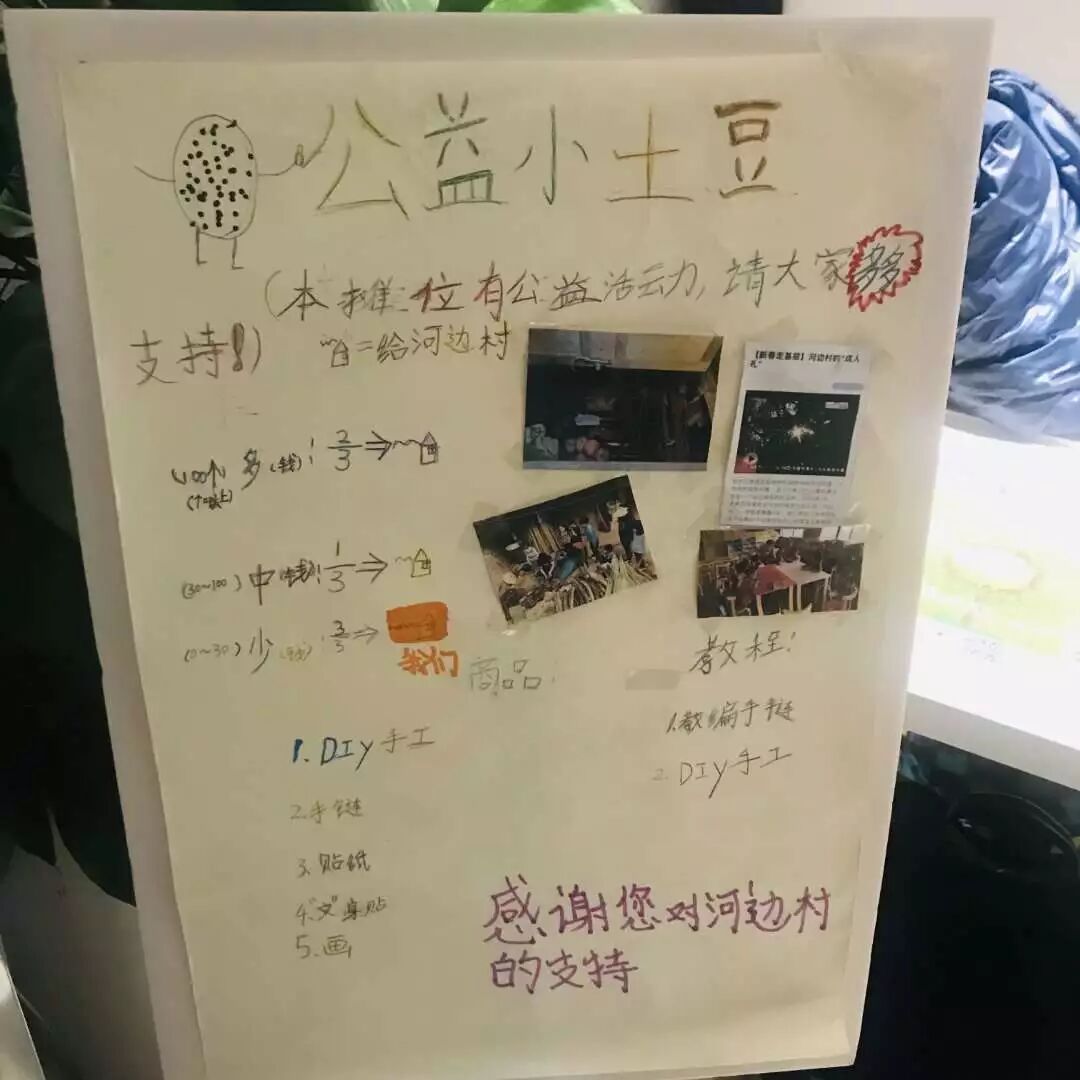 公益小土豆
(本摊位有公益活动,请大家多多
支持!)
=给河边村
【新春走基层】河边村的“成人
礼”
多(钱): 2/3 ⇒
(30~100) 中(钱): 1/3 ⇒
(0~30) 少(钱): 3/3 ⇒
商品:
教程!
1.DIy手工
2.手链
3.贴纸
4.“文”身贴
5.画
1.教编手链
2.DIy手工
感谢您对河边村
的支持